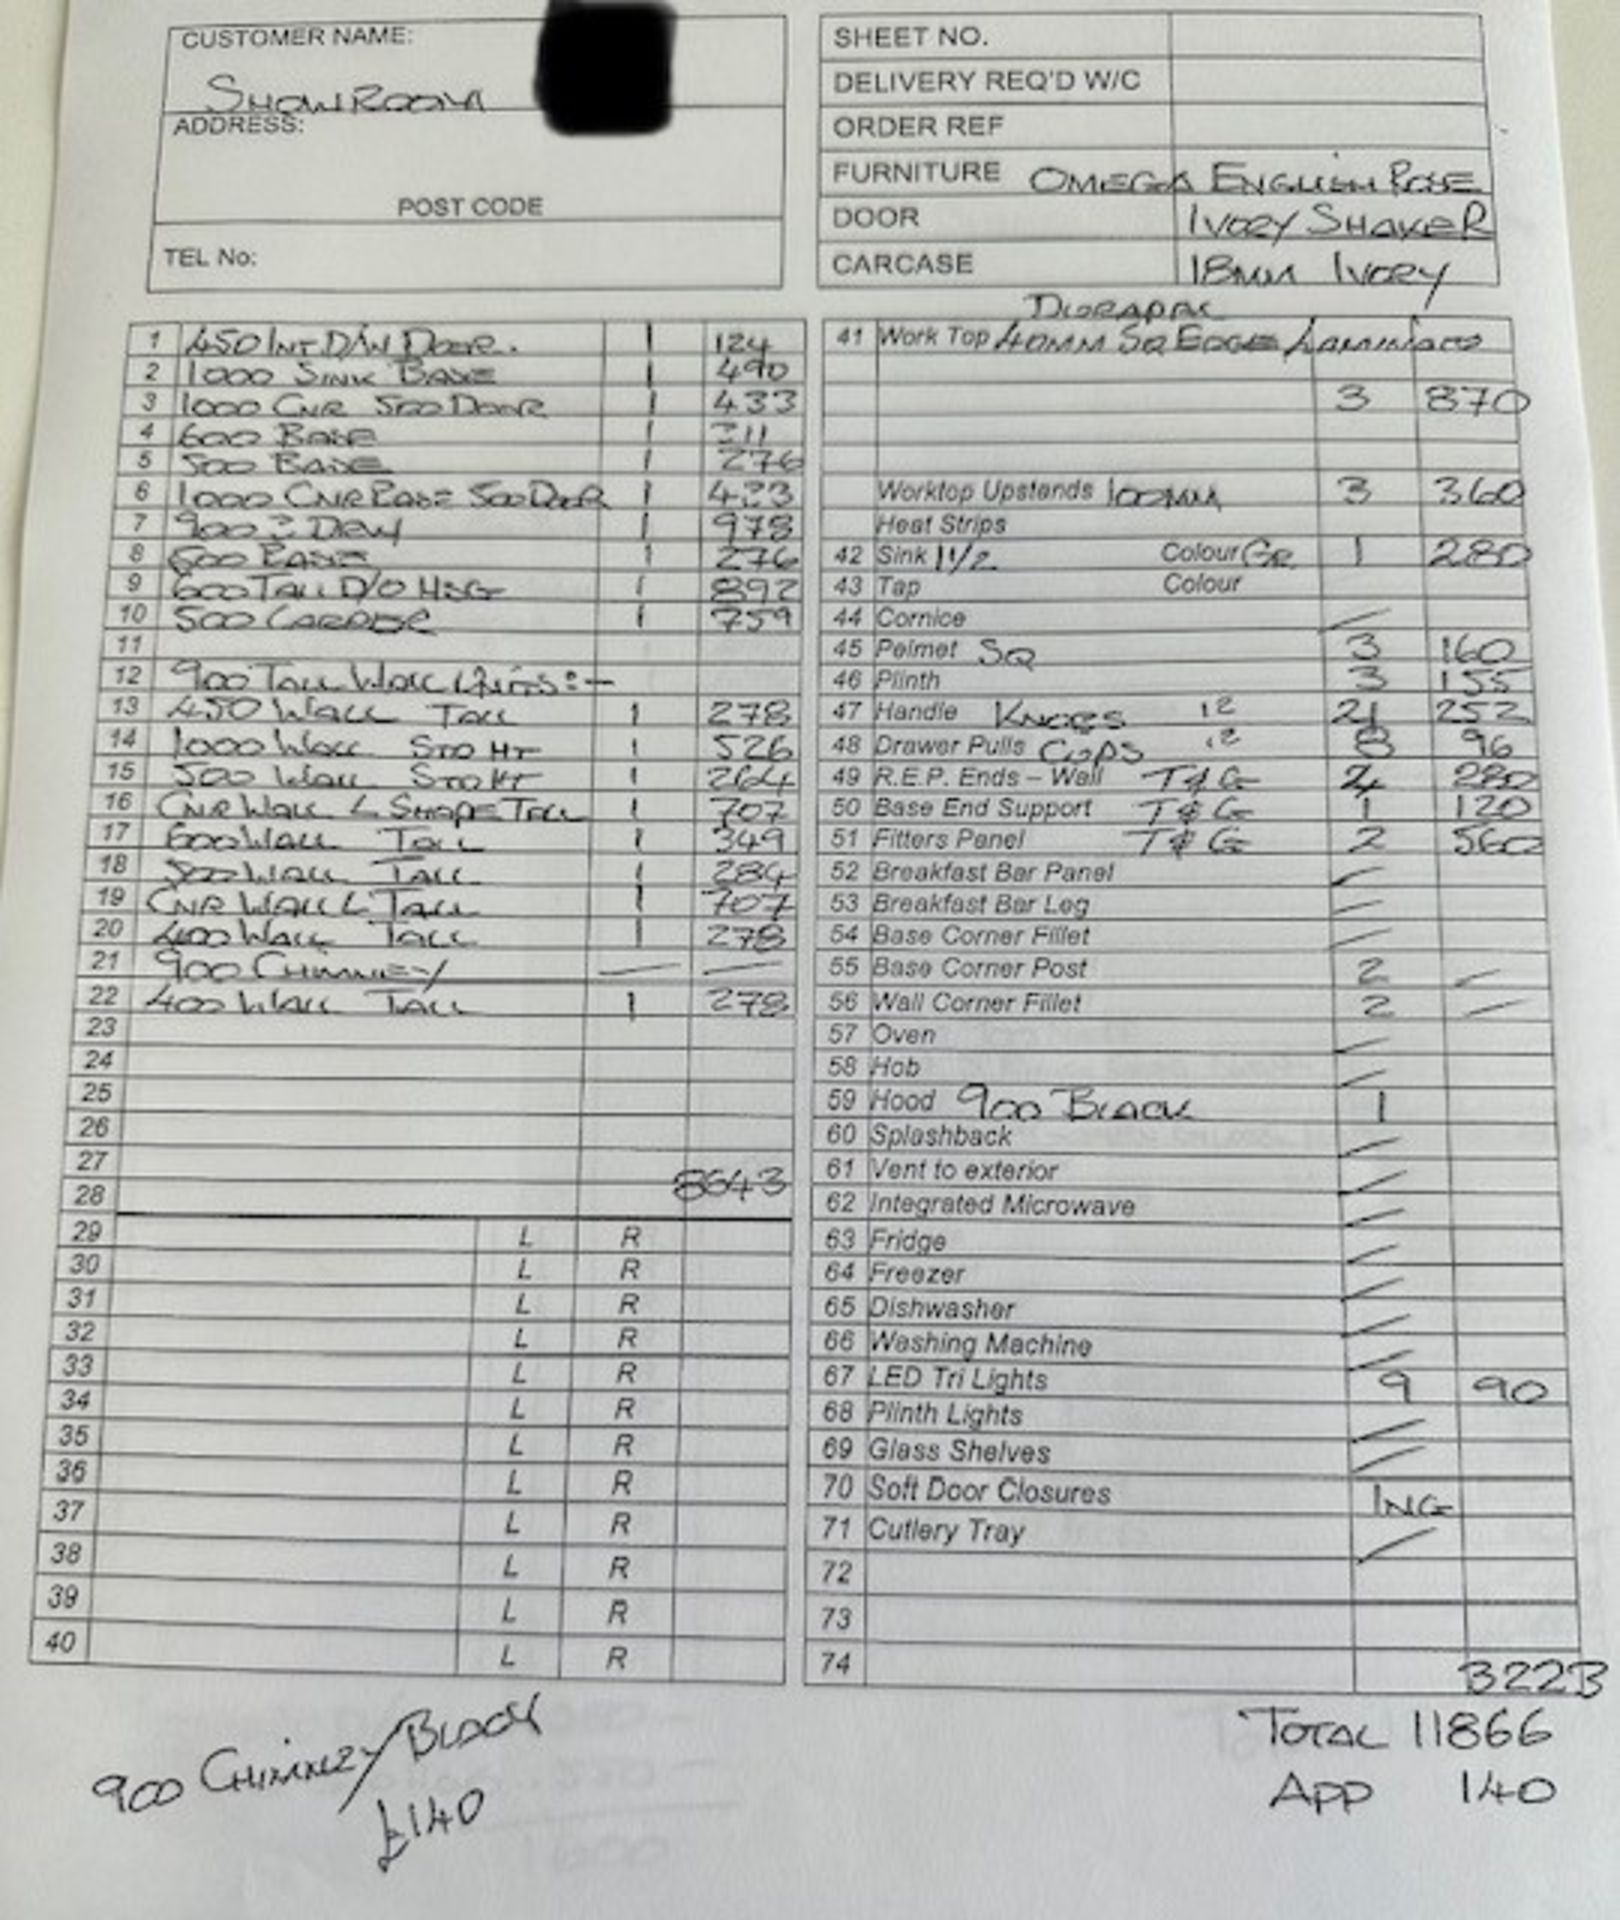 CUSTOMER NAME:
SHOWROOM
ADDRESS:
POST CODE
TEL No:
SHEET NO.
DELIVERY REQ'D W/C
ORDER REF
FURNITURE OMEGA ENGLISH ROSE
DOOR IVORY SHAKER
CARCASE 18MM IVORY
1 450 INT D/W DOOR. 1 124
2 1000 SINK BASE 1 490
3 1000 CNR 500 DOOR 1 433
4 600 BASE 1 311
5 500 BASE 1 276
6 1000 CNR BASE 500 DOOR 1 433
7 900 3 DRW 1 978
8 500 BASE 1 276
9 600 TALL D/O HSG 1 892
10 500 LARDER 1 759
11
12 900 TALL WALL UNITS:-
13 450 WALL TALL 1 278
14 1000 WALL STD HT 1 526
15 500 WALL STD HT 1 264
16 CNR WALL L SHAPE TALL 1 707
17 600 WALL TALL 1 349
18 500 WALL TALL 1 284
19 CNR WALL L TALL 1 707
20 400 WALL TALL 1 278
21 900 CHIMNEY — —
22 400 WALL TALL 1 278
23
24
25
26
27
28 8643
29 L R
30 L R
31 L R
32 L R
33 L R
34 L R
35 L R
36 L R
37 L R
38 L R
39 L R
40 L R
DURAPAL
41 Work Top 40MM SQ EDGE LAMINATE
3 870
Worktop Upstands 100MM 3 360
Heat Strips
42 Sink 1 1/2 Colour GR 1 280
43 Tap Colour
44 Cornice /
45 Pelmet SQ 3 160
46 Plinth 3 155
47 Handle KNOBS 12 21 252
48 Drawer Pulls CUPS 12 8 96
49 R.E.P. Ends – Wall T & G 4 280
50 Base End Support T & G 1 120
51 Fitters Panel T & G 2 560
52 Breakfast Bar Panel /
53 Breakfast Bar Leg /
54 Base Corner Fillet /
55 Base Corner Post 2 /
56 Wall Corner Fillet 2 /
57 Oven /
58 Hob /
59 Hood 900 BLACK 1
60 Splashback /
61 Vent to exterior /
62 Integrated Microwave /
63 Fridge /
64 Freezer /
65 Dishwasher /
66 Washing Machine /
67 LED Tri Lights 9 90
68 Plinth Lights /
69 Glass Shelves /
70 Soft Door Closures INC
71 Cutlery Tray /
72
73
74 3223
TOTAL 11866
APP 140
900 CHIMNEY/BLACK
£140